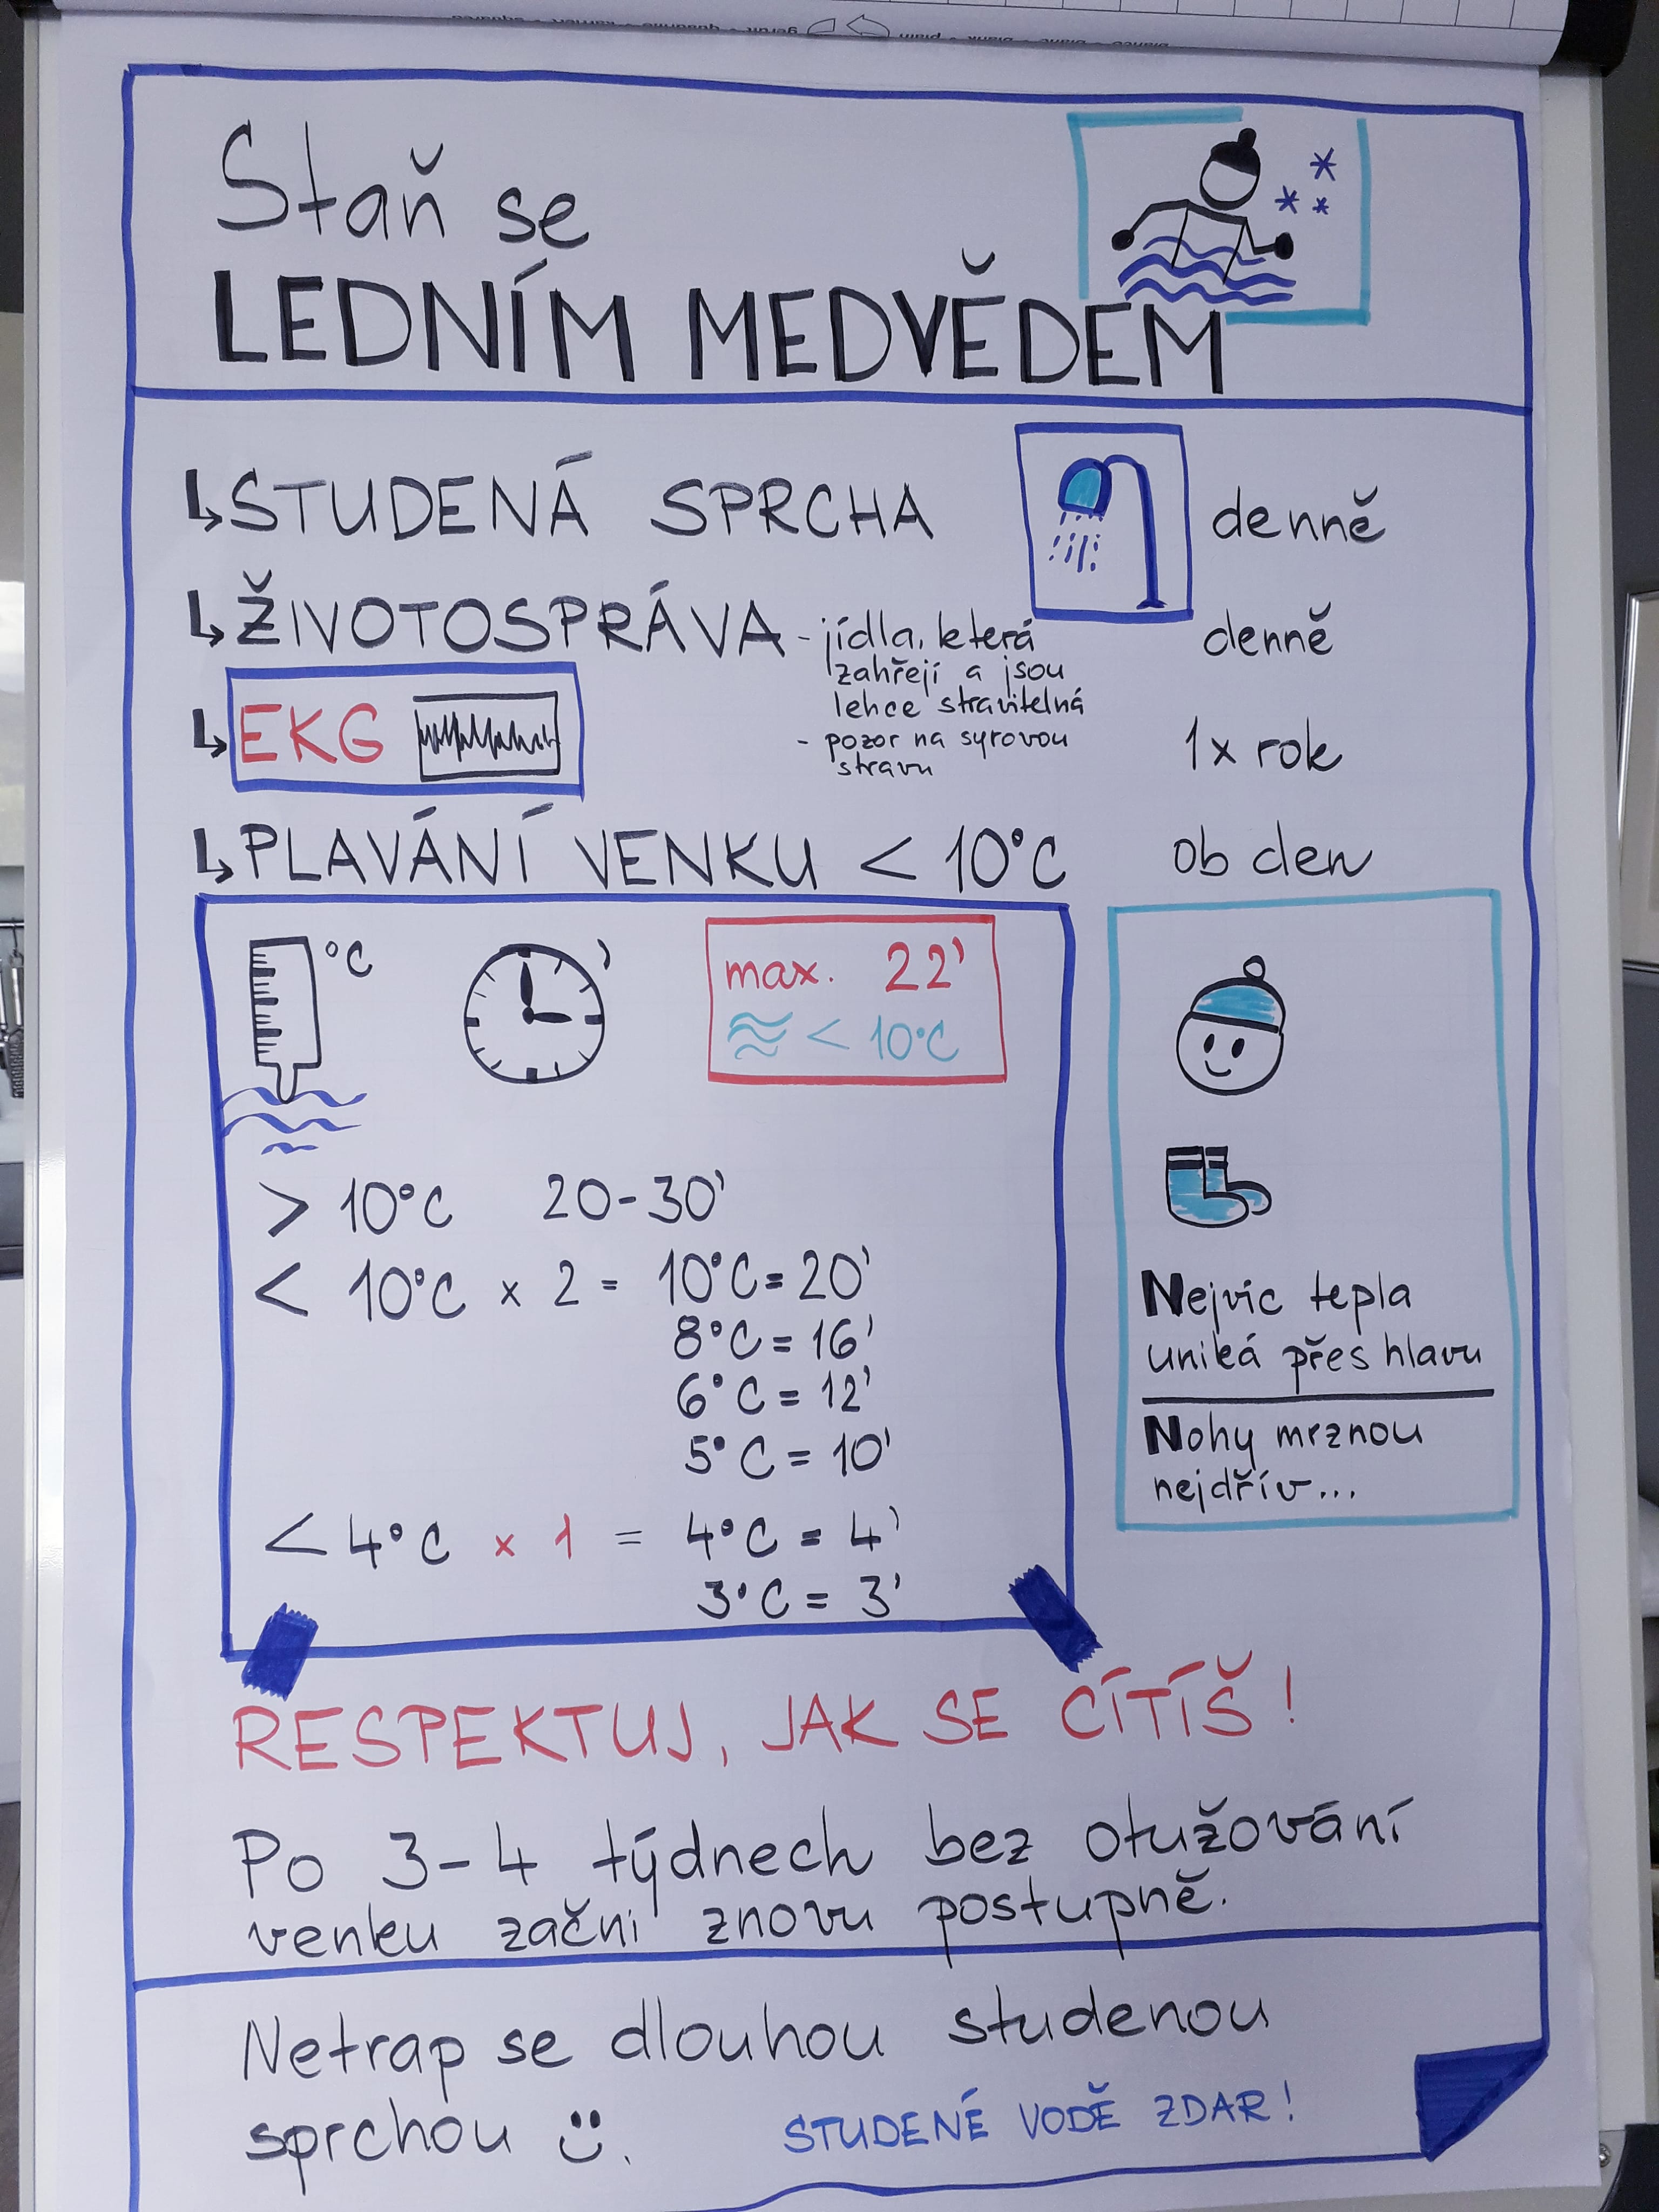 Staň se
LEDNÍM MEDVĚDEM
↳ STUDENÁ SPRCHA denně
↳ ŽIVOTOSPRÁVA - jídla, která denně
zahřejí a jsou
lehce stravitelná
- pozor na syrovou
stravu
↳ EKG 1x rok
↳ PLAVÁNÍ VENKU < 10°C ob den
°C
'
max. 22'
≈ < 10°C
> 10°C 20-30'
< 10°C x 2 = 10°C = 20'
8°C = 16'
6°C = 12'
5°C = 10'
< 4°C x 1 = 4°C = 4'
3°C = 3'
Nejvíc tepla
uniká přes hlavu
Nohy mrznou
nejdřív...
RESPEKTUJ, JAK SE CÍTÍŠ!
Po 3-4 týdnech bez otužování
venku začni znovu postupně.
Netrap se dlouhou studenou
sprchou ☺.
STUDENÉ VODĚ ZDAR!